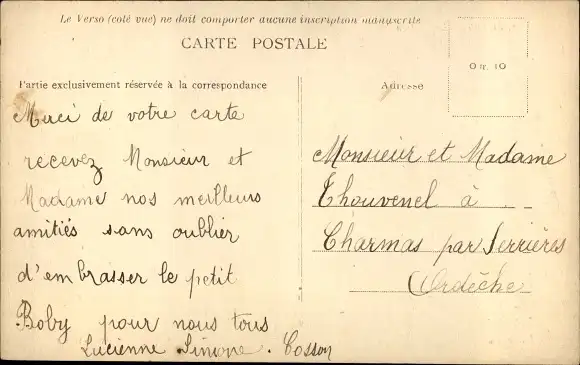 Le Verso (coté vue) ne doit comporter aucune inscription manuscrite
CARTE POSTALE
0 fr. 10
Partie exclusivement réservée à la correspondance
Adresse
Merci de votre carte
recevez Monsieur et
Madame nos meilleurs
amitiés sans oublier
d'embrasser le petit
Boby pour nous tous
Lucienne Simone. Cosson
Monsieur et Madame
Thouvenel à
Charmas par Serrières
Ardèche